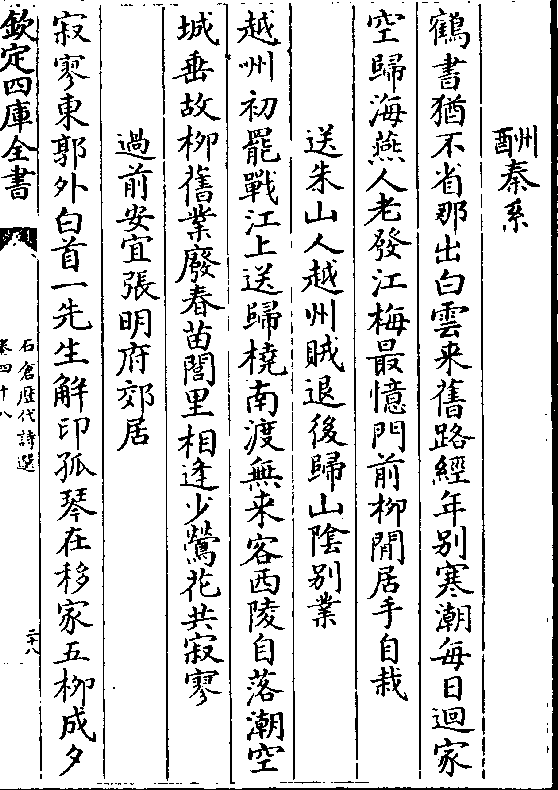 酬秦系
鶴書猶不省那出白雲来舊路經年别寒潮每日迴家
空歸海燕人老發江梅最憶門前柳閒居手自栽
送朱山人越州賊退後歸山隂别業
越州初罷戰江上送歸橈南渡無来客西陵自落潮空
城垂故柳舊業廢春苗閭里相逢少鶯花共寂寥
過前安宜張明府郊居
寂寥東郭外白首一先生解印孤琴在移家五柳成夕
欽定四庫全書
石倉歴代詩選
卷四十八
二十八